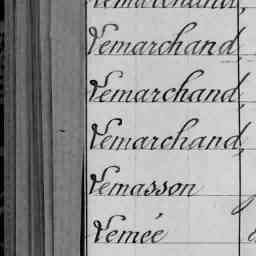 Lemarchand,
Lemarchand,
Lemarchand,
Lemarchand,
Lemasson
Lemée